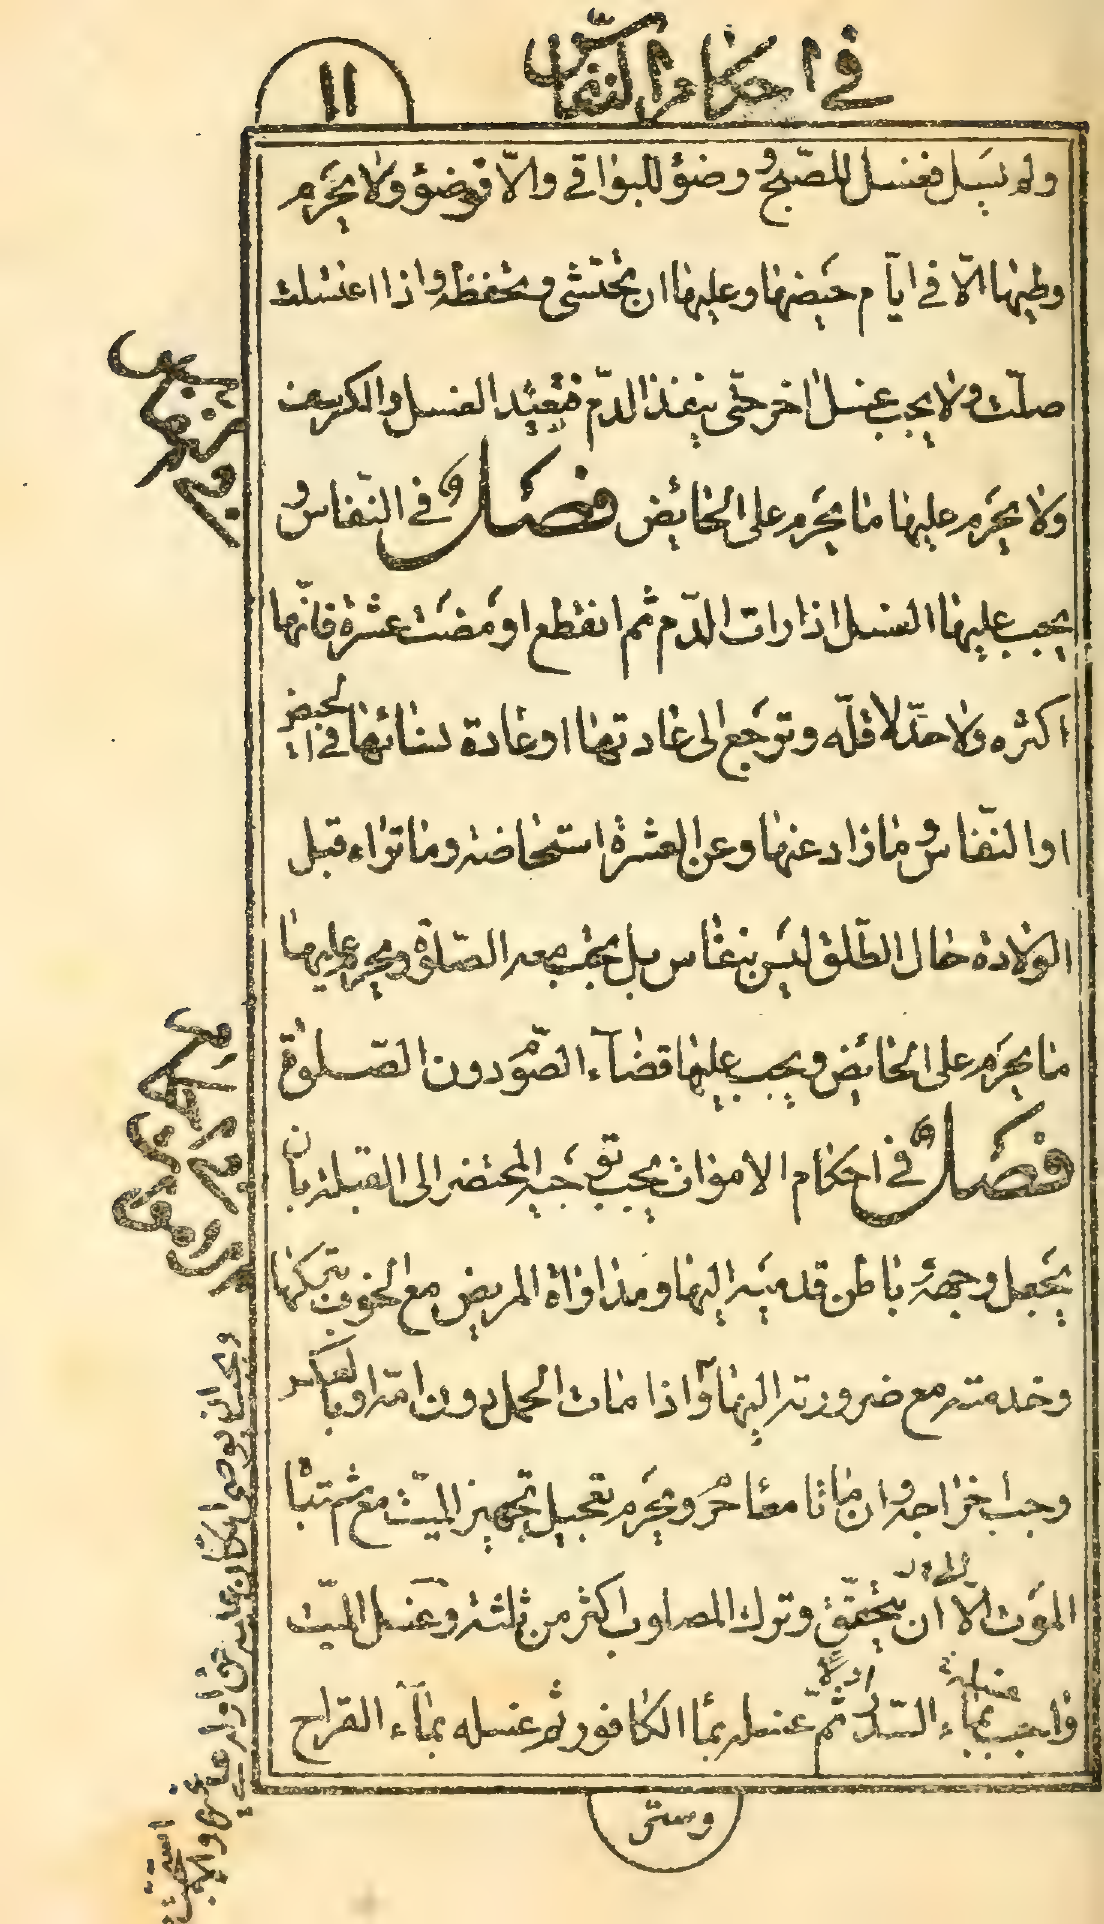 في احكام النفاس
١١
ولم يسل فغسل للصّبح و وضؤ للبواقي والّا فوضؤ ولا يحرم
وطيها الّا في ايّام حيضها وعليها ان تحتشي وتحفظه واذا اغتسلت
صلّت ولا يجب غسل اخر حتّى ينفذ الدّم فتعيد الغسل والكرسف
ولا يحرم عليها ما يحرم على الحائض فصل في النّفاس و
يجب عليها الغسل اذا رات الدّم ثم انقطع او مضت عشرة فانّها
اكثره ولا حدّ لاقلّه وترجع الى عادتها او عادة نسائها في الحيض
او النّفاس و ما زاد عنها وعن العشرة استحاضة وما تراه قبل
الولادة حال الطّلق ليس بنفاس بل يجب معه الصّلوة ويحرم عليها
ما يحرم على الحائض ويجب عليها قضآء الصّوم دون الصّلوة
فصل في احكام الاموات يجب توجيه المحتضر الى القبلة بان
يجعل وجهه وباطن قدميه اليها ومداواة المريض مع الخوف بتركها
وخدمته مع ضرورته اليها واذا مات الحمل دون امّه او بالعكس
وجب اخراجه وان ماتا معا حرم ويحرم تعجيل تجهيز الميّت مع شتباه
الموت الّا ان يتحقّق وترك المصلوب اكثر من ثلثة وغسل الميّت
واجب بمآء السّدر اولا ثمّ غسله بمآء الكافور ثم غسله بمآء القراح
وستر